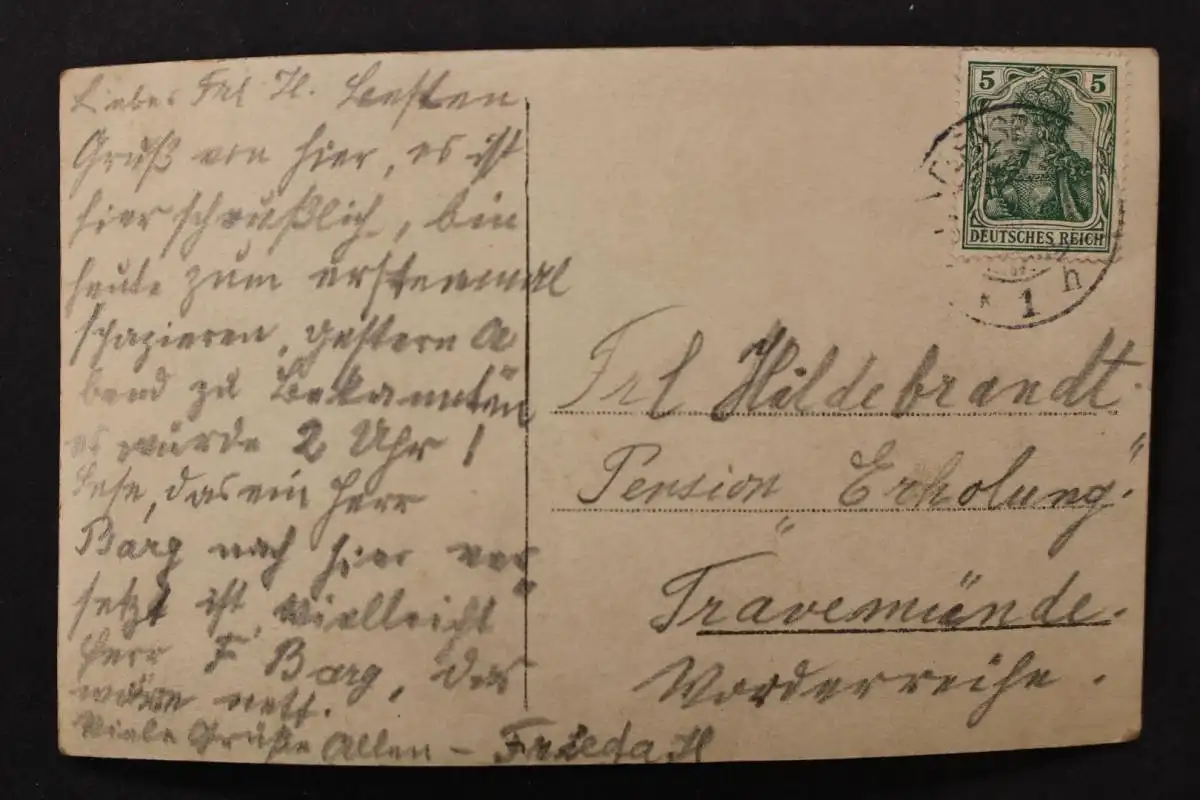 Liebes Frl H. Besten
Gruß von hier, es ist
hier scheußlich, bin
heute zum erstenmal
spazieren, gestern A
bend zu Bekannten
es wurde 2 Uhr!
Lese, das ein Herr
Barg nach hier ver
setzt ist, vielleicht
Herr F Barg, das
wäre nett.
Viele Grüße Allen – Frieda H
5 5
DEUTSCHES REICH
1 h
Frl Hildebrandt.
Pension „Erholung“
Travemünde.
Vorderreihe.